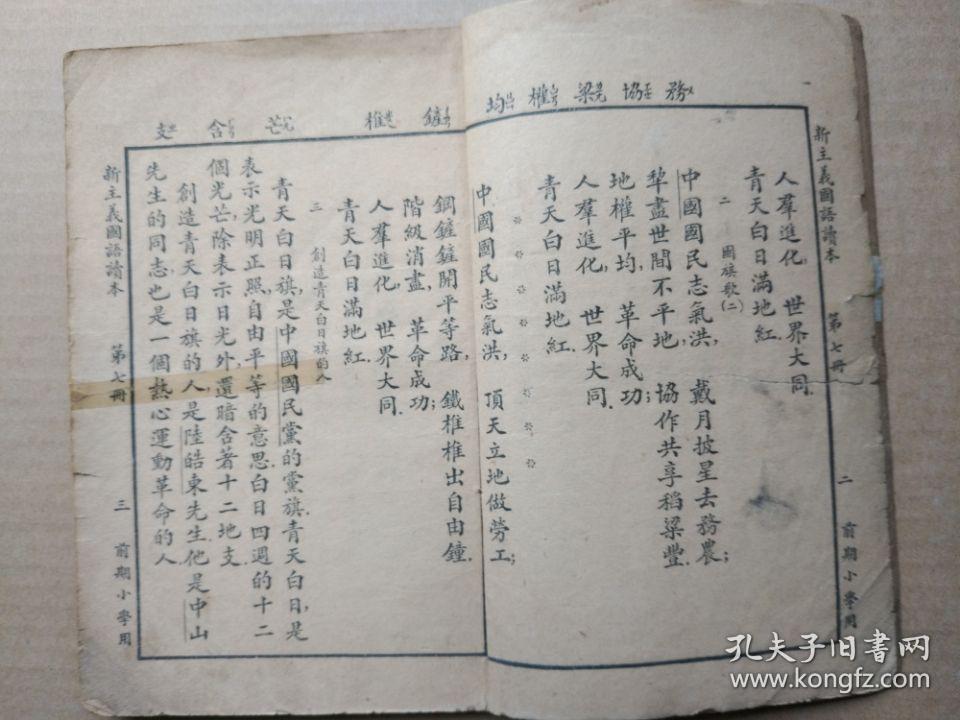 務 協 梁 權 均
新主義國語讀本 第七冊 二 前期小學用
人羣進化, 世界大同.
青天白日滿地紅.
二 國旗歌(二)
中國國民志氣洪, 戴月披星去務農;
犂盡世間不平地, 協作共享稻粱豐.
地權平均, 革命成功;
人羣進化, 世界大同.
青天白日滿地紅.
中國國民志氣洪, 頂天立地做勞工;
鋼鏟鏟開平等路, 鐵椎椎出自由鐘.
階級消盡, 革命成功;
人羣進化, 世界大同.
青天白日滿地紅.
鏟 椎 芒 含 支
三 創造青天白日旗的人
青天白日旗,是中國國民黨的黨旗.青天白日,是
表示光明正照,自由平等的意思.白日四週的十二
個光芒,除表示日光外,還暗含著十二地支.
創造青天白日旗的人,是陸皓東先生.他是中山
先生的同志,也是一個熱心運動革命的人.
新主義國語讀本 第七冊 三 前期小學用
孔夫子旧书网
www.kongfz.com